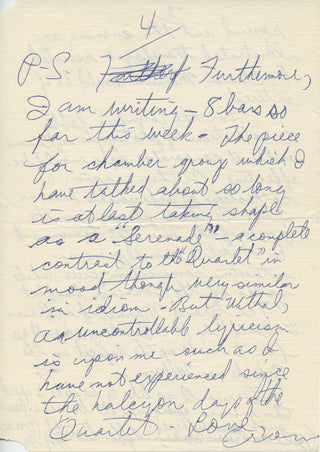 4
P-S- Furthermore,
I am writing - 8 bars so
far this week - The piece
for chamber group which I
have talked about so long
is at last taking shape
as a "Serenade" - a complete
contrast to the "Quartet" in
mood though very similar
in idiom - But withal,
an uncontrollable lyricism
is upon me such as I
have not experienced since
the halcyon days of the
Quartet - Love